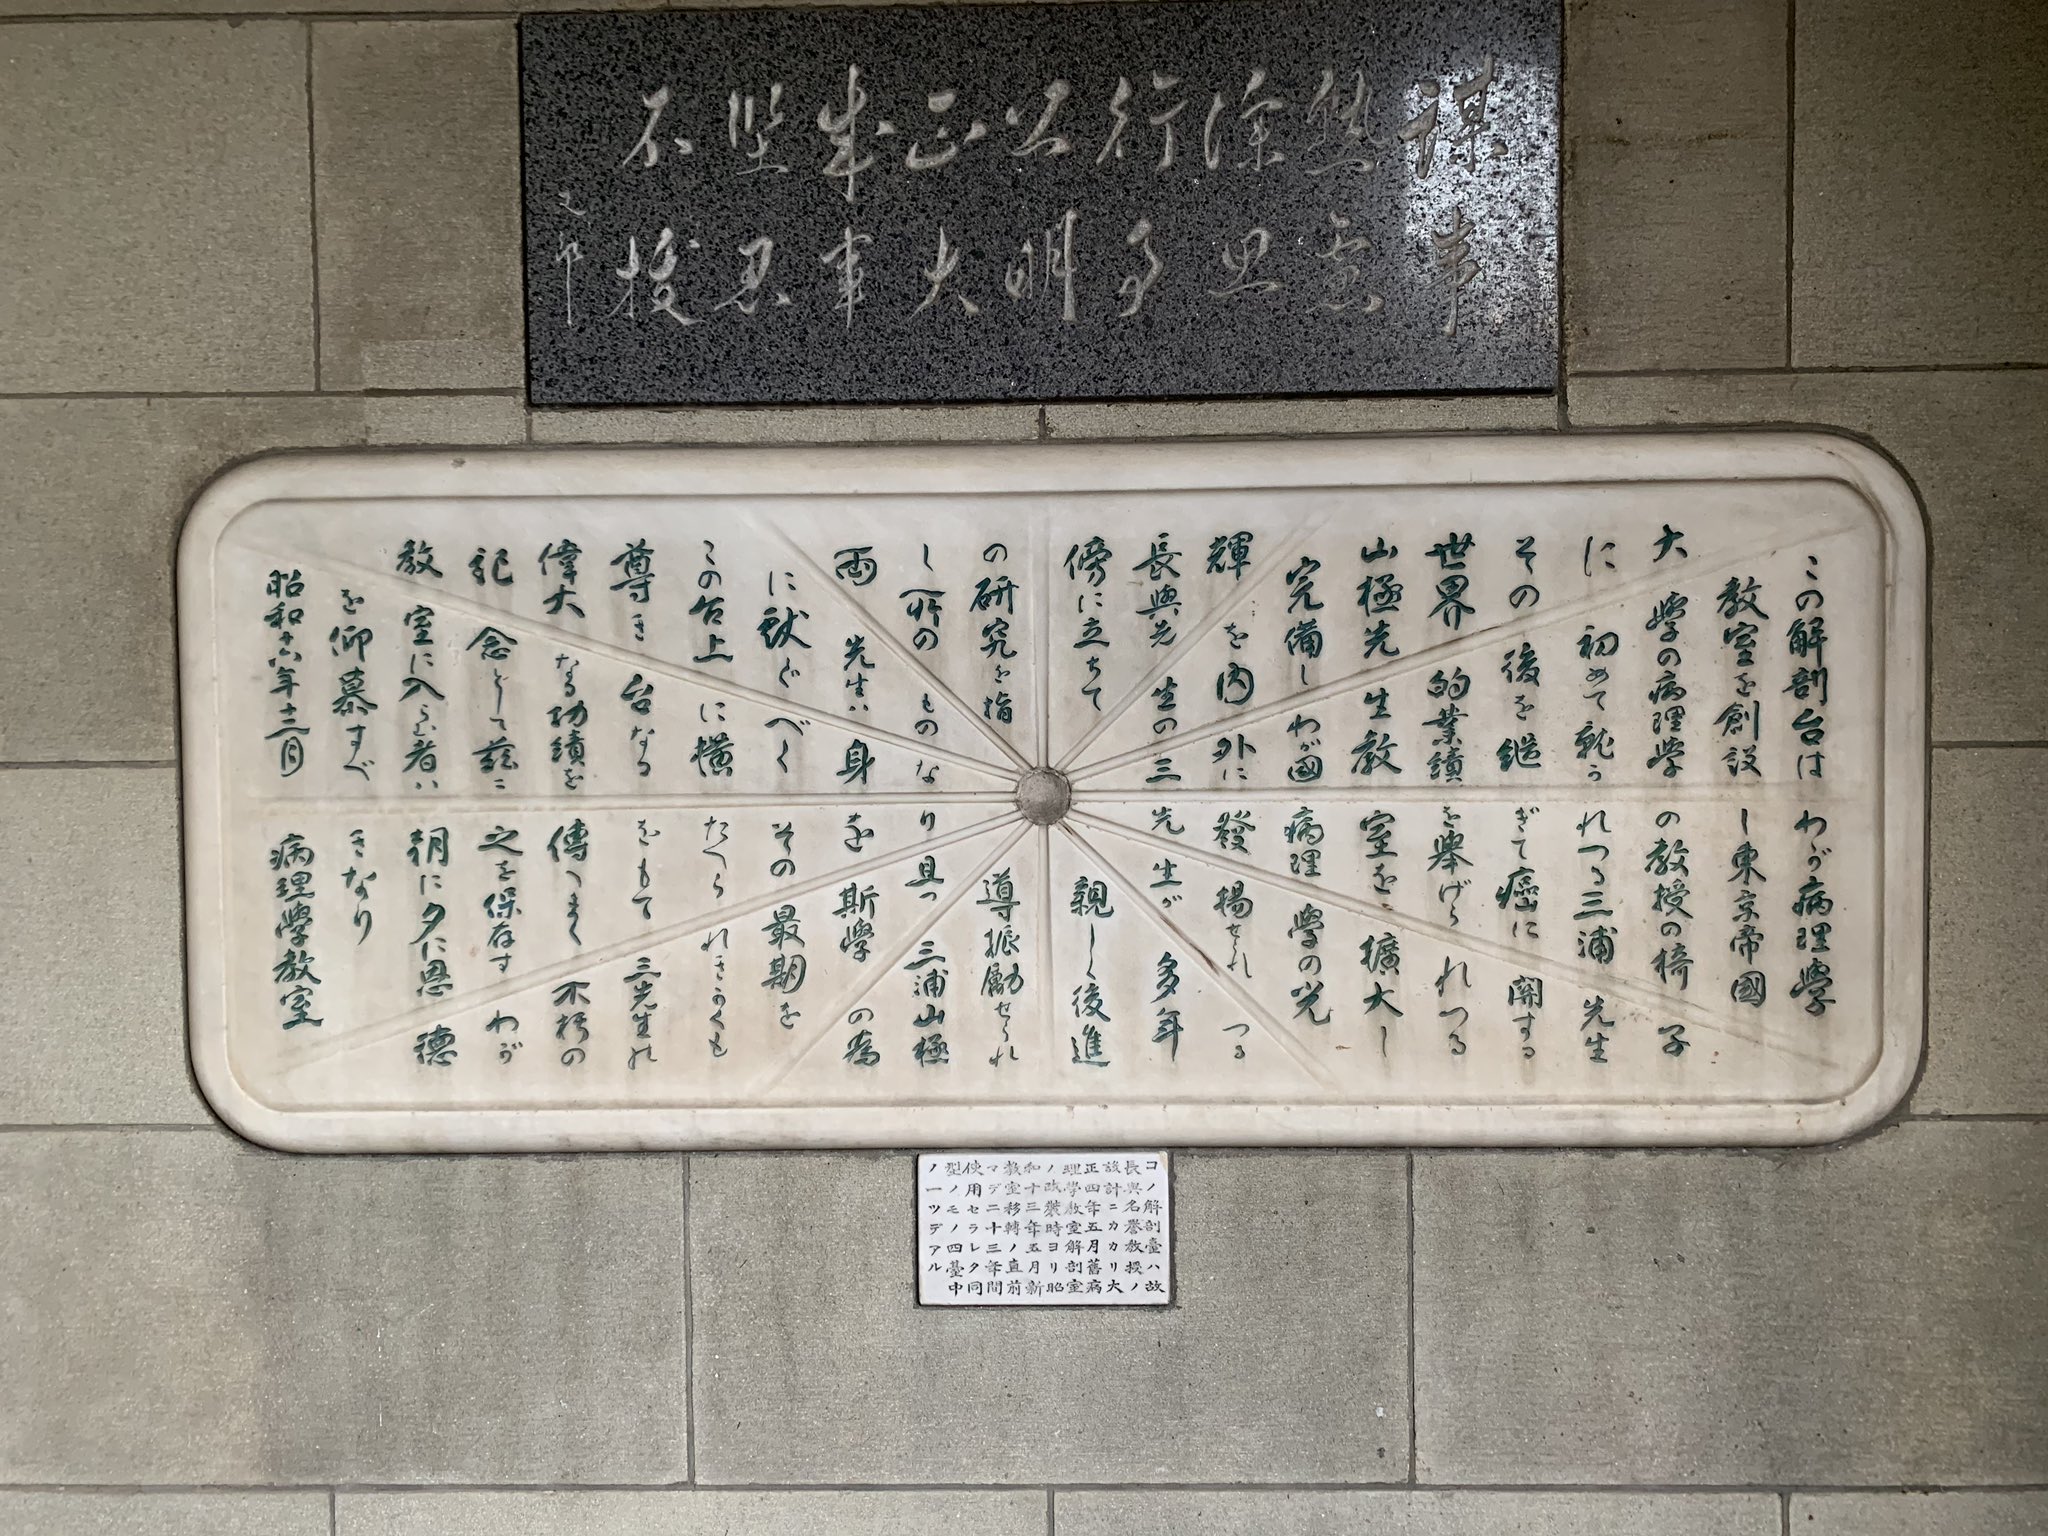 謀事
熟慮
深思
行事
公明
正大
成事
堅忍
不抜
又郎
この解剖台はわが病理學
教室を創設し東京帝國
大學の病理學の教授の椅子
に初めて就かれつる三浦先生
その後を継ぎて癌に関する
世界的業績を舉げられつる
山極先生教室を擴大し
完備しわが國病理學の光
輝を内外に發揚せられつる
長與先生の三先生が多年
傍に立ちて親しく後進
の研究を指導振勵せられ
し所のものなり且つ三浦山極
両先生は身を斯學の為
に献ぐべくその最期を
この台上に横たへられきかくも
尊き台なるをもて三先生の
偉大なる功績を傳へまく不朽の
記念として茲に之を保存すわが
教室に入らむ者は朝に夕に恩徳
を仰慕すべきなり
昭和十六年十二月 病理學教室
コノ解剖臺ハ故
長與名譽教授ノ
設計ニカカリ大
正四年五月舊病
理學教室解剖室
ノ改裝時ヨリ昭
和十三年五月新
教室移轉ノ直前
マデ二十三年間
使用セラレタ同
型ノモノ四臺中
ノ一ツデアル